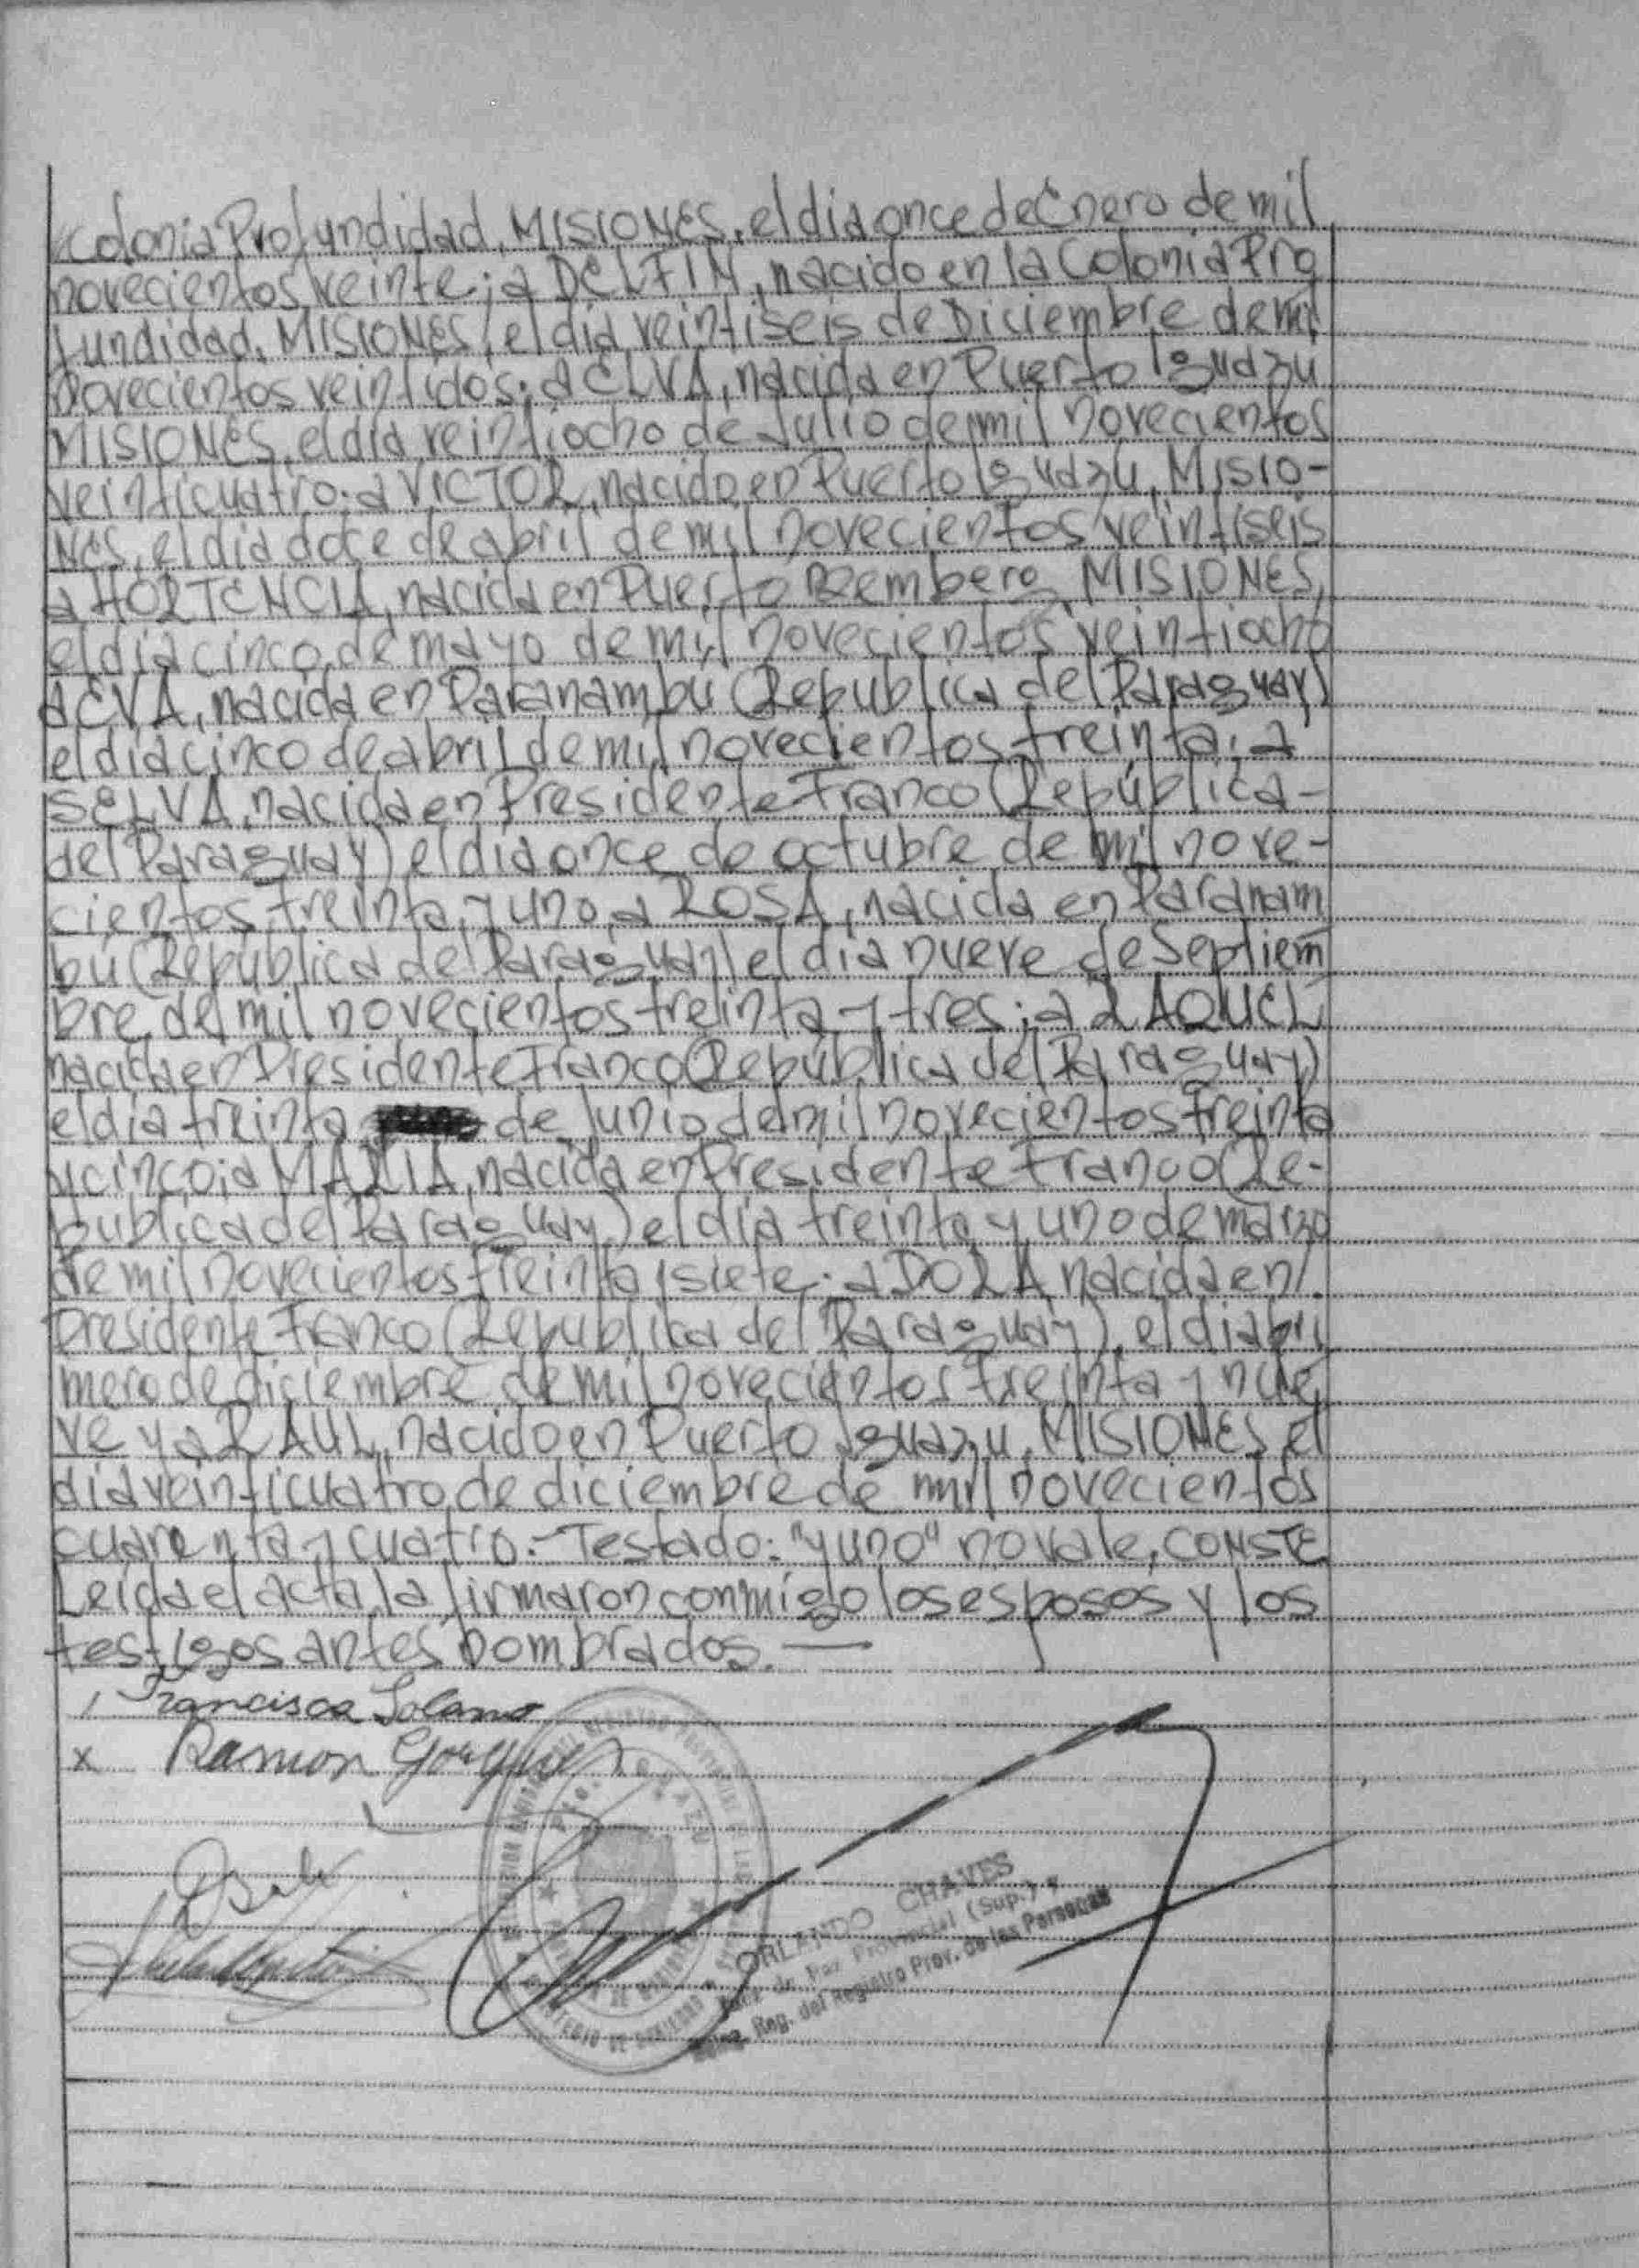 Colonia Profundidad, MISIONES, el dia once de Enero de mil
novecientos veinte; a DELFIN, nacido en la Colonia Pro
fundidad, MISIONES, el día veintiseis de Diciembre de mil
novecientos veintidos; a ELVA, nacida en Puerto Iguazu
MISIONES, el día veintiocho de Julio de mil novecientos
veinticuatro; a VICTOR, nacido en Puerto Iguazu, MISIO-
NES, el día doce de abril de mil novecientos veintiseis
a HORTENCIA, nacida en Puerto Bemberg, MISIONES,
el día cinco de mayo de mil novecientos veintiocho
a EVA, nacida en Paranambu (Republica del Paraguay)
el dia cinco de abril de mil novecientos treinta; a
SELVA, nacida en Presidente Franco (República-
del Paraguay) el dia once de octubre de mil nove-
cientos treinta y uno, a ROSA, nacida en Paranam
bú (República del Paraguay) el dia nueve de Septiem
bre de mil novecientos treinta y tres; a RAQUEL
nacida en Presidente Franco (República del Paraguay)
el día treinta de Junio de mil novecientos treinta
y cinco; a MARIA, nacida en Presidente Franco (Re-
publica del Paraguay) el día treinta y uno de marzo
de mil novecientos treinta y siete; a DORA nacida en
Presidente Franco (Republica del Paraguay), el dia pri
mero de diciembre de mil novecientos treinta y nue
ve y a RAUL, nacido en Puerto Iguazu, MISIONES el
dia veinticuatro de diciembre de mil novecientos
cuarenta y cuatro.- Testado: "y uno" no vale, CONSTE
Leida el acta, la firmaron conmigo los esposos y los
testigos antes nombrados.
Francisca Solano
x Ramon
ORLANDO CHAVES
Juez de Paz Provincial (Sup.) y
Reg. del Registro Prov. de las Personas